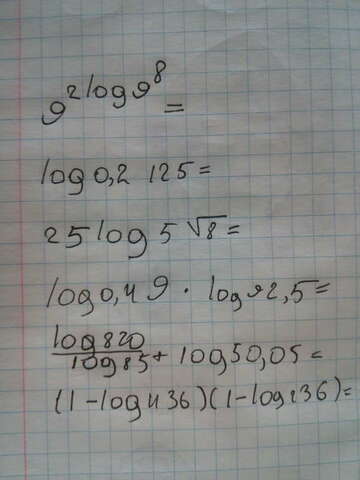 9^2log9^8 =
log0,2 125=
25log5√8=
log0,4 9 · log92,5=
log820/log85+ log50,05=
(1-log436)(1-log936)=